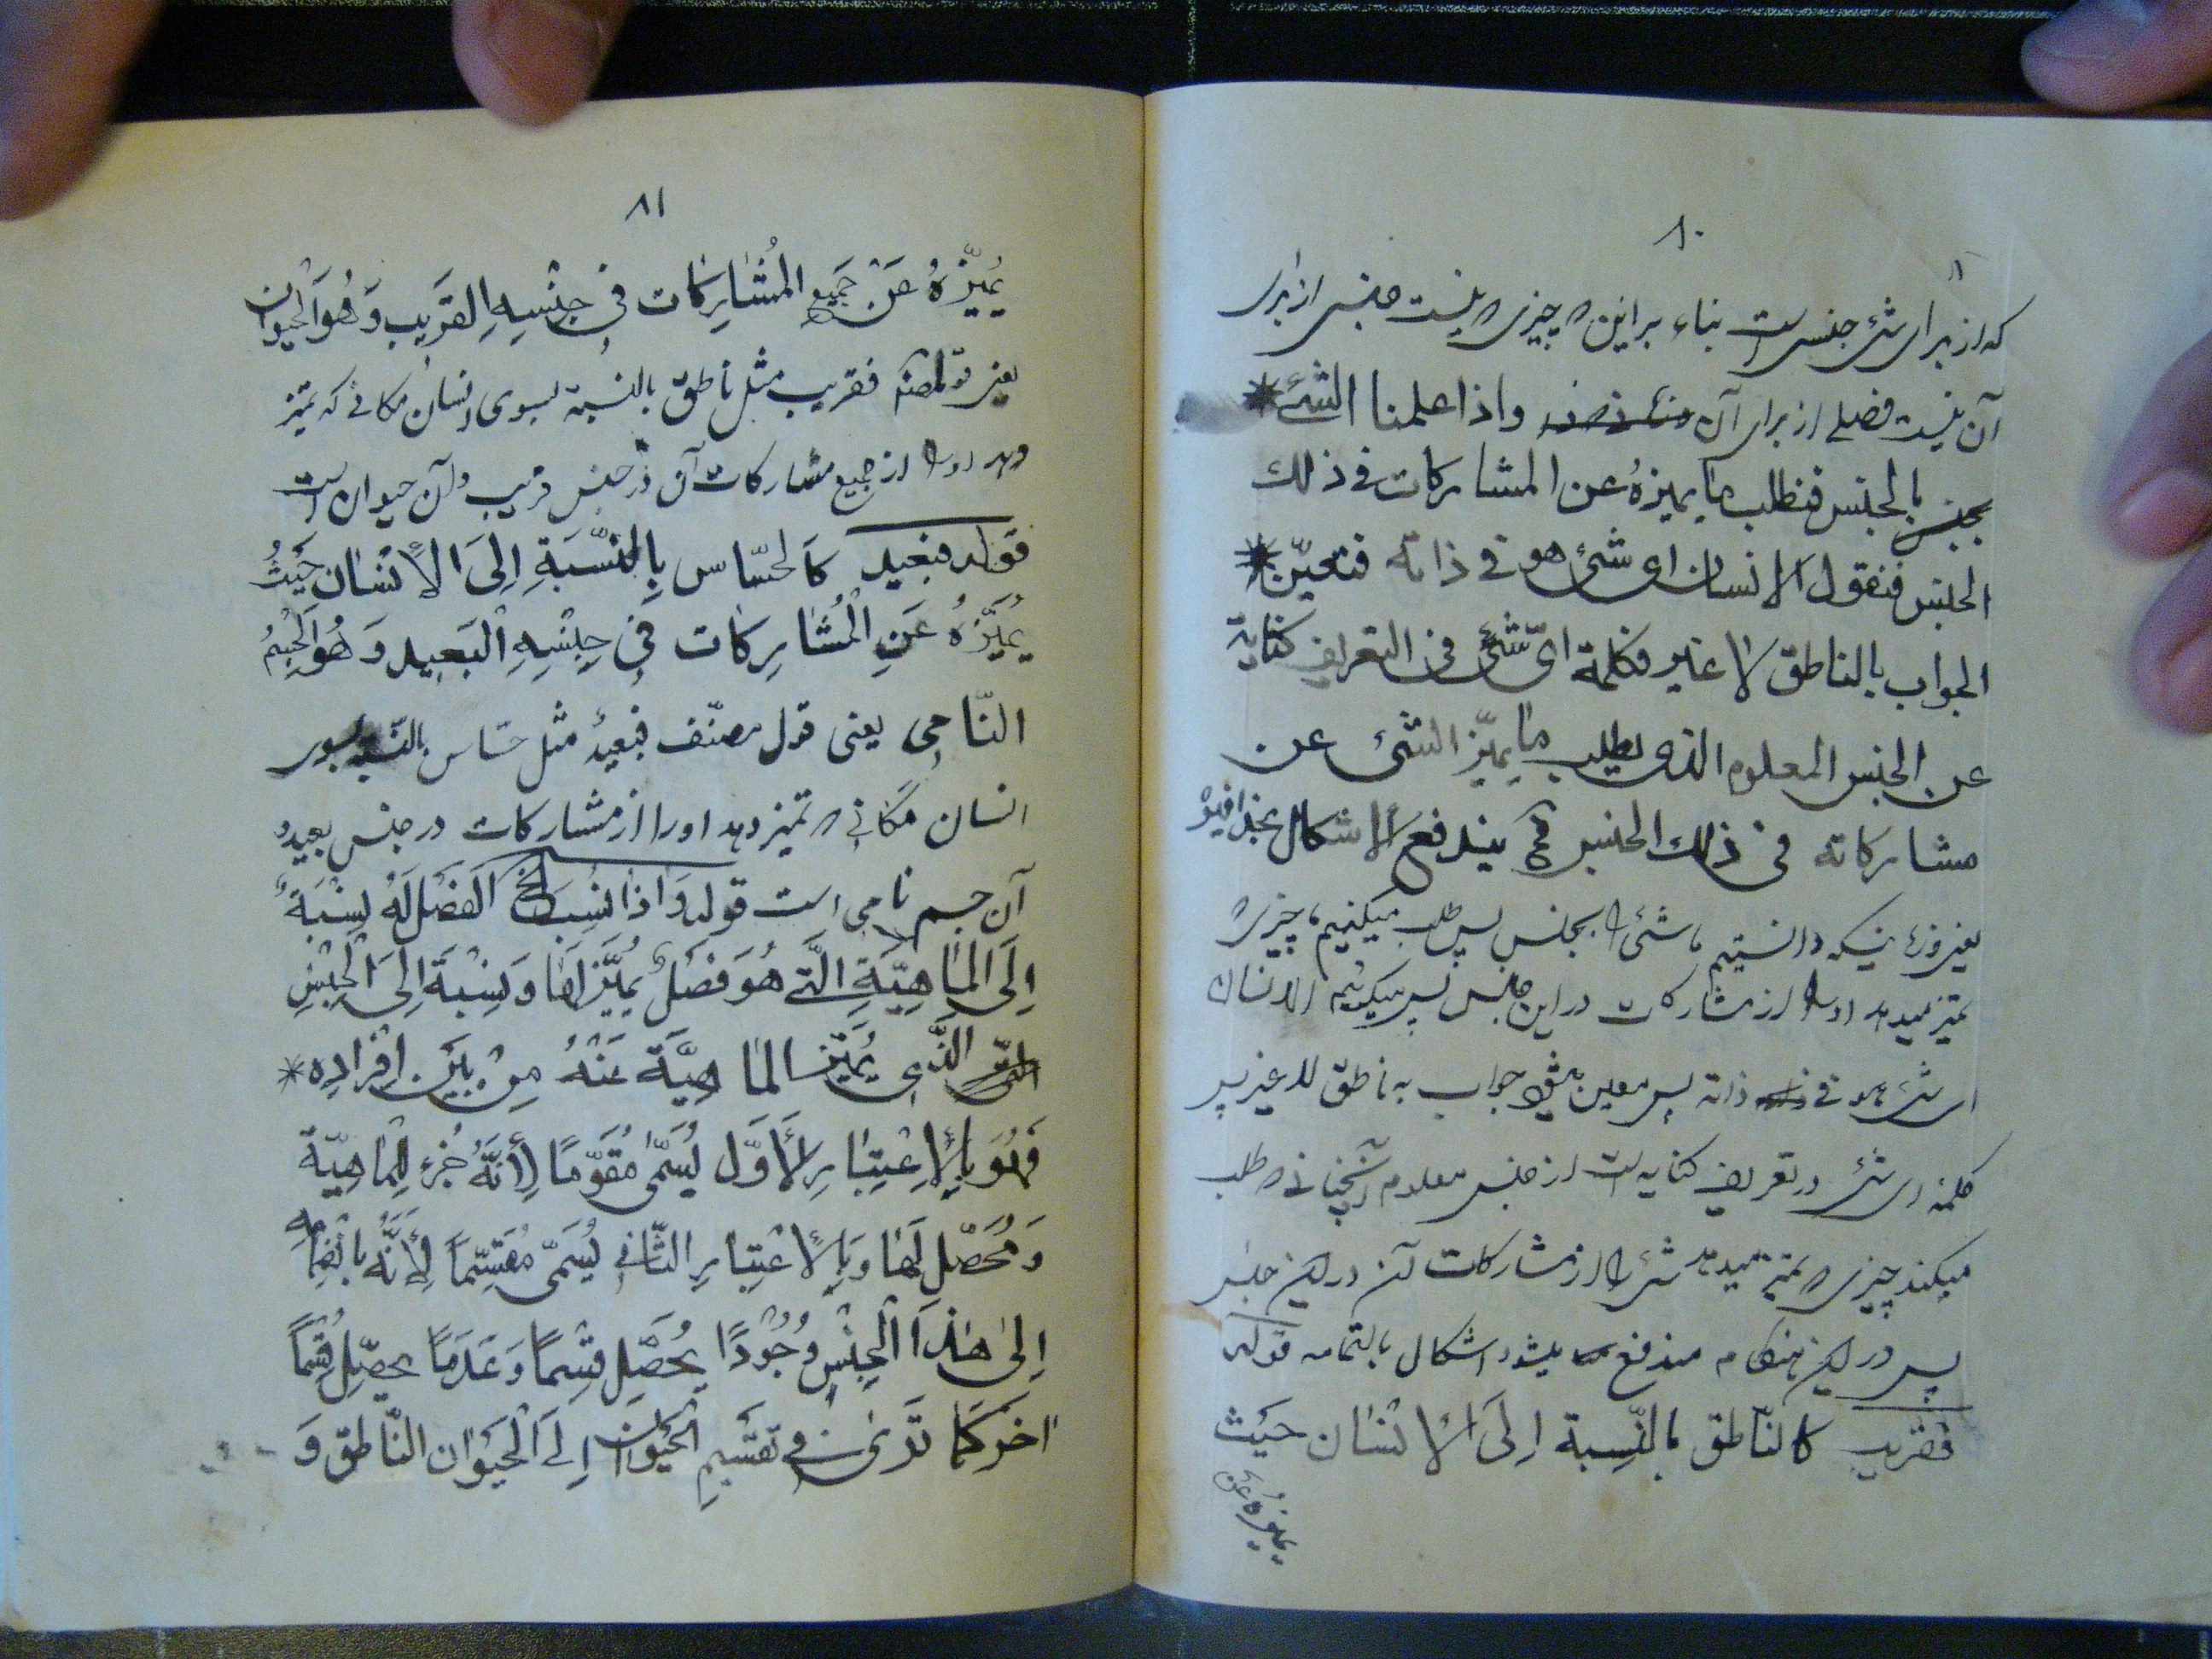 ٨٠
که از برای شئ جنس است بناء براین که چیزی که نیست جنس از برای
آن نیست فصلی از برای آن واذا علمنا الشئ
بالجنس فنطلب ما یمیزهُ عن المشارکات فی ذلك
الجنس فنقول الانسان ای شئ هو فی ذاته فتعیّن
الجواب بالناطق لا غیر فکلمة ایّ شئ فی التعریف کنایة
عن الجنس المعلوم الذی یطلب ما یمیّز الشئ عن
مشارکاته فی ذلك الجنس یندفع الاشکال بحذافیره
یعنی دانستیم ما شئ را بجنس پس طلب میکنیم ما چیزی که
تمیز میدهد او را از مشارکات در این جنس پس میگوئیم الانسان
ای شئ هو فی ذاته پس معین میشود جواب به ناطق لا غیر پس
کلمه ای شئ در تعریف کنایه است از جنس معلوم آنچنانی که طلب
میکند چیزی که تمیز میدهد شئ را از مشارکات آن در این جنس
پس در این هنگام مندفع میشود اشکال بالتمامه قوله
فقریب کالنّاطق بالنِّسبة اِلَی الْاِنْسٰان حَیْث
یمیزُهُ عَنْ
٨١
یُمَیِّزُهُ عَنْ جَمیعِ الْمُشٰارِکٰات فی جِنْسِهِ الْقَریبِ وَهُوَ الْحَیَوٰان
یعنی قول مصنف فقریب مثل ناطق بالنسبة بسوی انسان مکانی که تمیز
دهد او را از جمیع مشارکات آن در جنس قریب و آن حیوان است
قوله فبعید کَالحسّاس بِالنِّسْبَةِ اِلَی الْأِنْسٰان حَیْثُ
یُمَیِّزُهُ عَنِ الْمُشٰارِکٰات فی جِنْسِهِ الْبَعید وَهُوَ الْجِسْمُ
النّٰامی یعنی قول مصنّف فبعیدٌ مثل حسّاس بالنّسبه بسوی
انسان مکانی که تمیز دهد او را از مشارکات در جنس بعید و
آن جسم نامی است قوله وَاِذٰا نُسِبَ الخ الَفَصْل لَهُ نِسْبَةٌ
اِلَی الْمٰاهِیَّةِ الَّتی هُوَ فَصْلٌ مُمَیِّزٌ لَهٰا وَنِسْبَة اِلَی الْجِنْسِ
الَّذی یُمَیِّز الْمٰاهِیَّةَ عَنْهُ مِنْ بَیْنِ اَفْرٰادِه
فَهُوَ بِالْأِعْتِبٰارِ الْأَوَّل یُسَمّٰی مُقَوِّمًا لِأَنَّهُ جُزْء لِلْمٰاهِیّة
وَمُحَصِّل لَهٰا وَبِالْأِعْتِبٰارِ الثّٰانی یُسَمّٰی مُقَسِّمًا لِأَنَّهُ بِانْضِمٰامِه
اِلٰی هٰذَا الْجِنْسِ وُجُوْدًا یُحَصِّل قِسْمًا وَعَدَمًا یحصِّل قِسْمًا
اٰخَرَ کَمٰا تَرٰی فی تَقْسیمِ الْحَیَوٰان اِلَی الْحَیَوٰان النّٰاطِق وَ